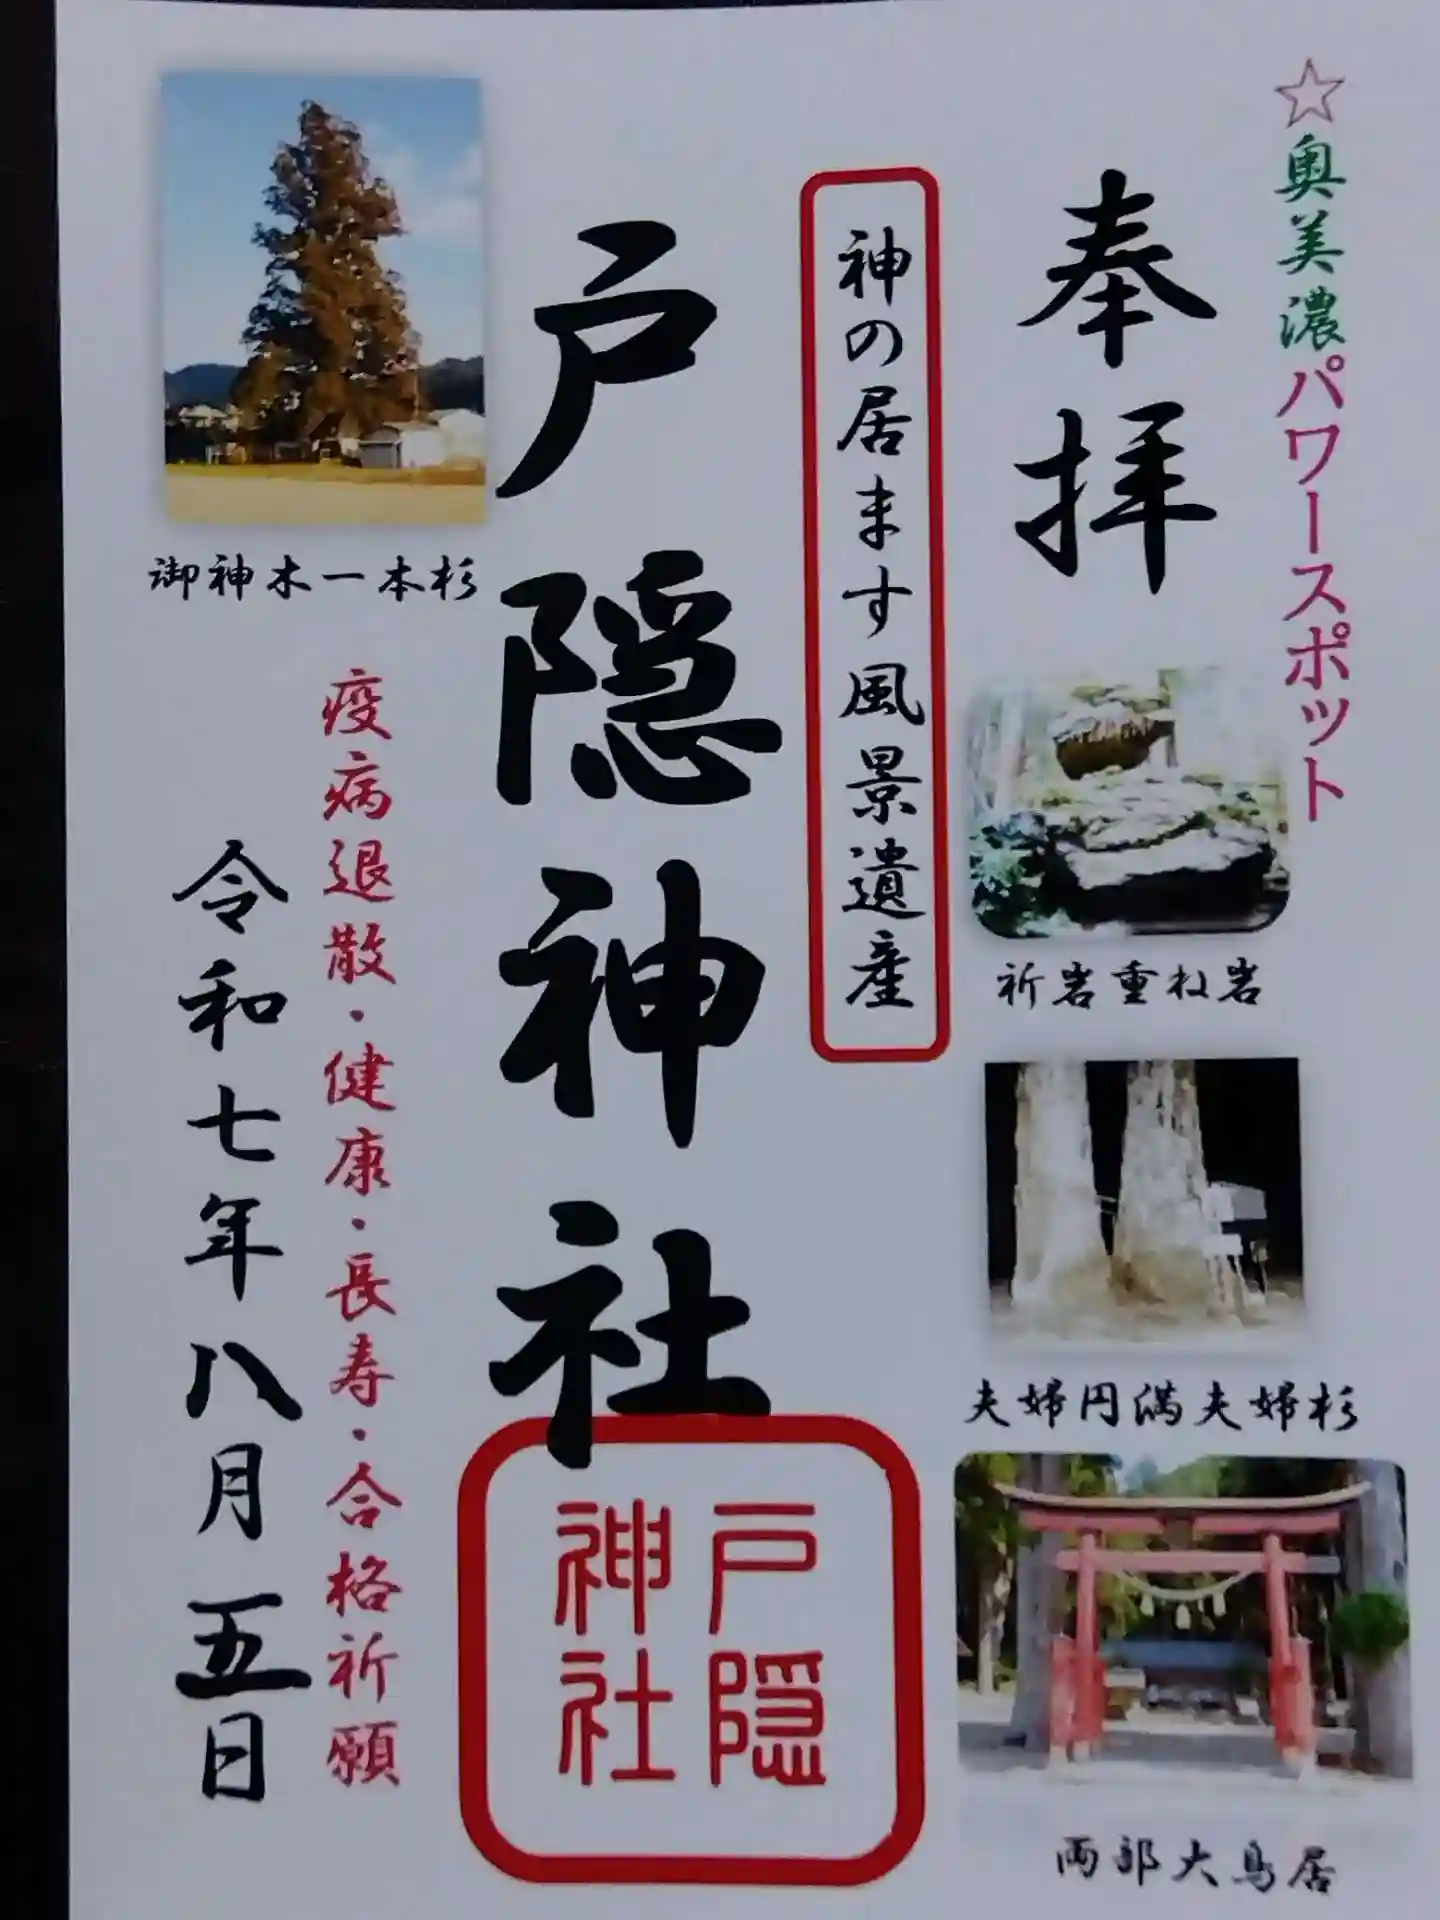 ☆奥美濃パワースポット
奉拝
祈岩重ね岩
夫婦円満夫婦杉
両部大鳥居
神の居ます風景遺産
戸隠神社
戸隠
神社
御神木一本杉
疫病退散・健康・長寿・合格祈願
令和七年八月五日